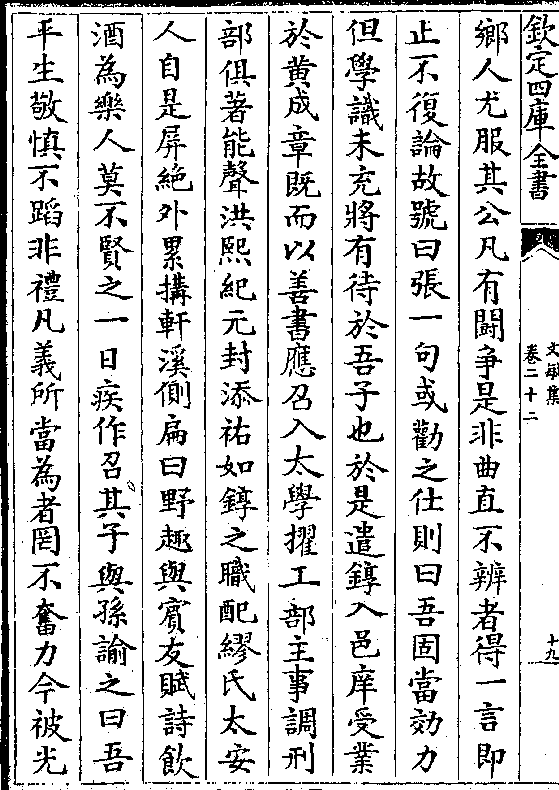 欽定四庫全書
文敏集
卷二十二
十九
鄉人尤服其公凡有鬪争是非曲直不辨者得一言即
止不復論故號曰張一句或勸之仕則曰吾固當効力
但學識未充將有待於吾子也於是遣錞入邑庠受業
於黄成章既而以善書應召入太學擢工部主事調刑
部俱著能聲洪熙紀元封添祐如錞之職配繆氏太安
人自是屏絶外累搆軒溪側扁曰野趣與賓友賦詩飲
酒為樂人莫不賢之一日疾作召其子與孫諭之曰吾
平生敬慎不蹈非禮凡義所當為者罔不奮力今被光